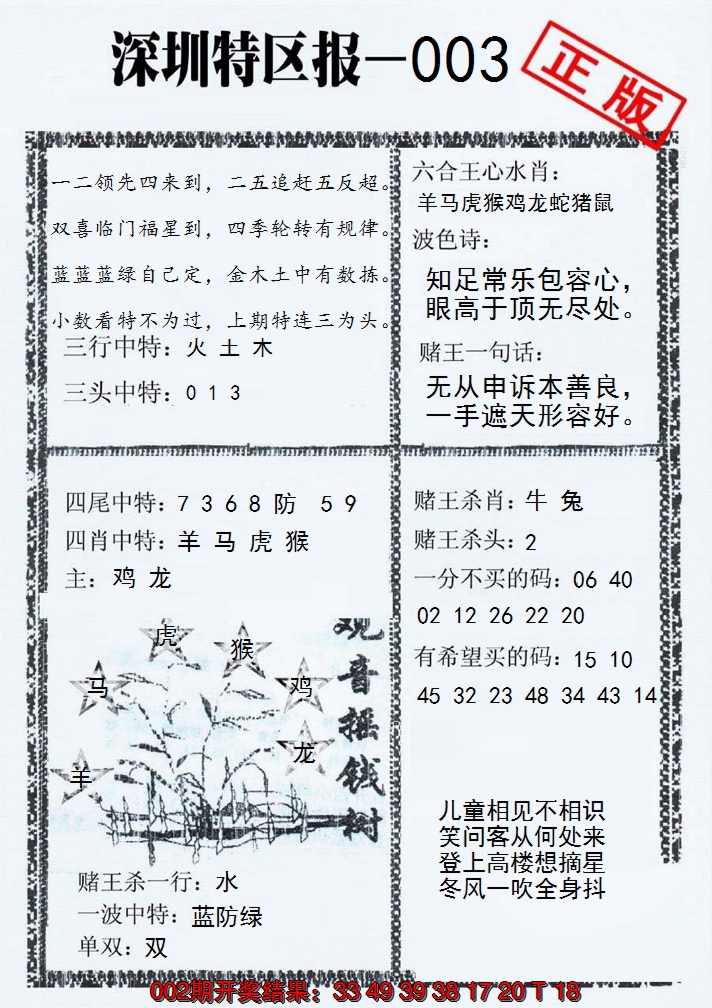 深圳特区报—003
正版
一二领先四来到，二五追赶五反超。
双喜临门福星到，四季轮转有规律。
蓝蓝蓝绿自己定，金木土中有数拣。
小数看特不为过，上期特连三为头。
三行中特：火 土 木
三头中特：0 1 3
六合王心水肖：
羊马虎猴鸡龙蛇猪鼠
波色诗：
知足常乐包容心，
眼高于顶无尽处。
赌王一句话：
无从申诉本善良，
一手遮天形容好。
四尾中特：7 3 6 8 防 5 9
四肖中特：羊 马 虎 猴
主：鸡 龙
虎
猴
马
鸡
龙
羊
观音摇钱树
赌王杀一行：水
一波中特：蓝防绿
单双：双
赌王杀肖：牛 兔
赌王杀头：2
一分不买的码：06 40
02 12 26 22 20
有希望买的码：15 10
45 32 23 48 34 43 14
儿童相见不相识
笑问客从何处来
登上高楼想摘星
冬风一吹全身抖
002期开奖结果：33 49 39 38 17 20 T 18